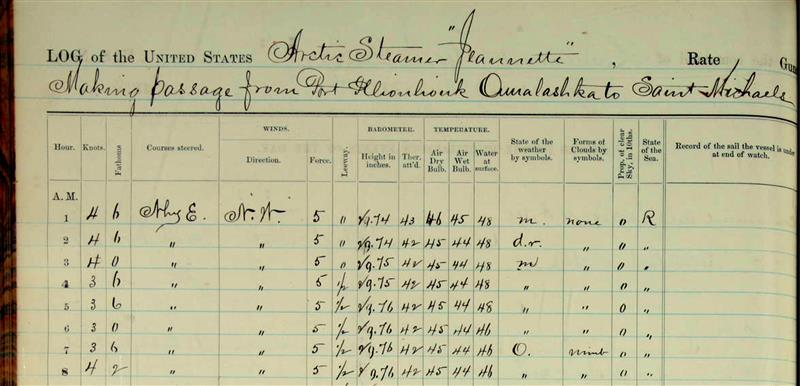 LOG of the UNITED STATES Arctic Steamer "Jeannette", Rate
Making passage from Port Illiouliouk Ounalashka to Saint Michaels
WINDS. BAROMETER. TEMPERATURE.
Hour. Knots. Fathoms Courses steered. Direction. Force. Leeway. Height in inches. Ther. att'd. Air Dry Bulb. Air Wet Bulb. Water at surface. State of the weather by symbols. Forms of Clouds by symbols. Prop. of clear Sky, in 10ths. State of the Sea. Record of the sail the vessel is under at end of watch.
A. M.
1 4 6 N by E. N.W. 5 0 29.74 43 46 45 48 m. none 0 R
2 4 6 " " 5 0 29.74 42 45 44 48 d.r. " 0 "
3 4 0 " " 5 0 29.75 42 45 44 48 m " 0 "
4 3 6 " " 5 1/2 29.75 42 45 44 48 " " 0 "
5 3 6 " " 5 1/2 29.76 42 45 44 48 " " 0 "
6 3 0 " " 5 1/2 29.76 42 45 44 46 " " 0 "
7 3 6 " " 5 1/2 29.76 42 45 44 46 O. nimb 0 "
8 4 2 " " 5 1/2 29.76 42 45 44 46 " " 0 "